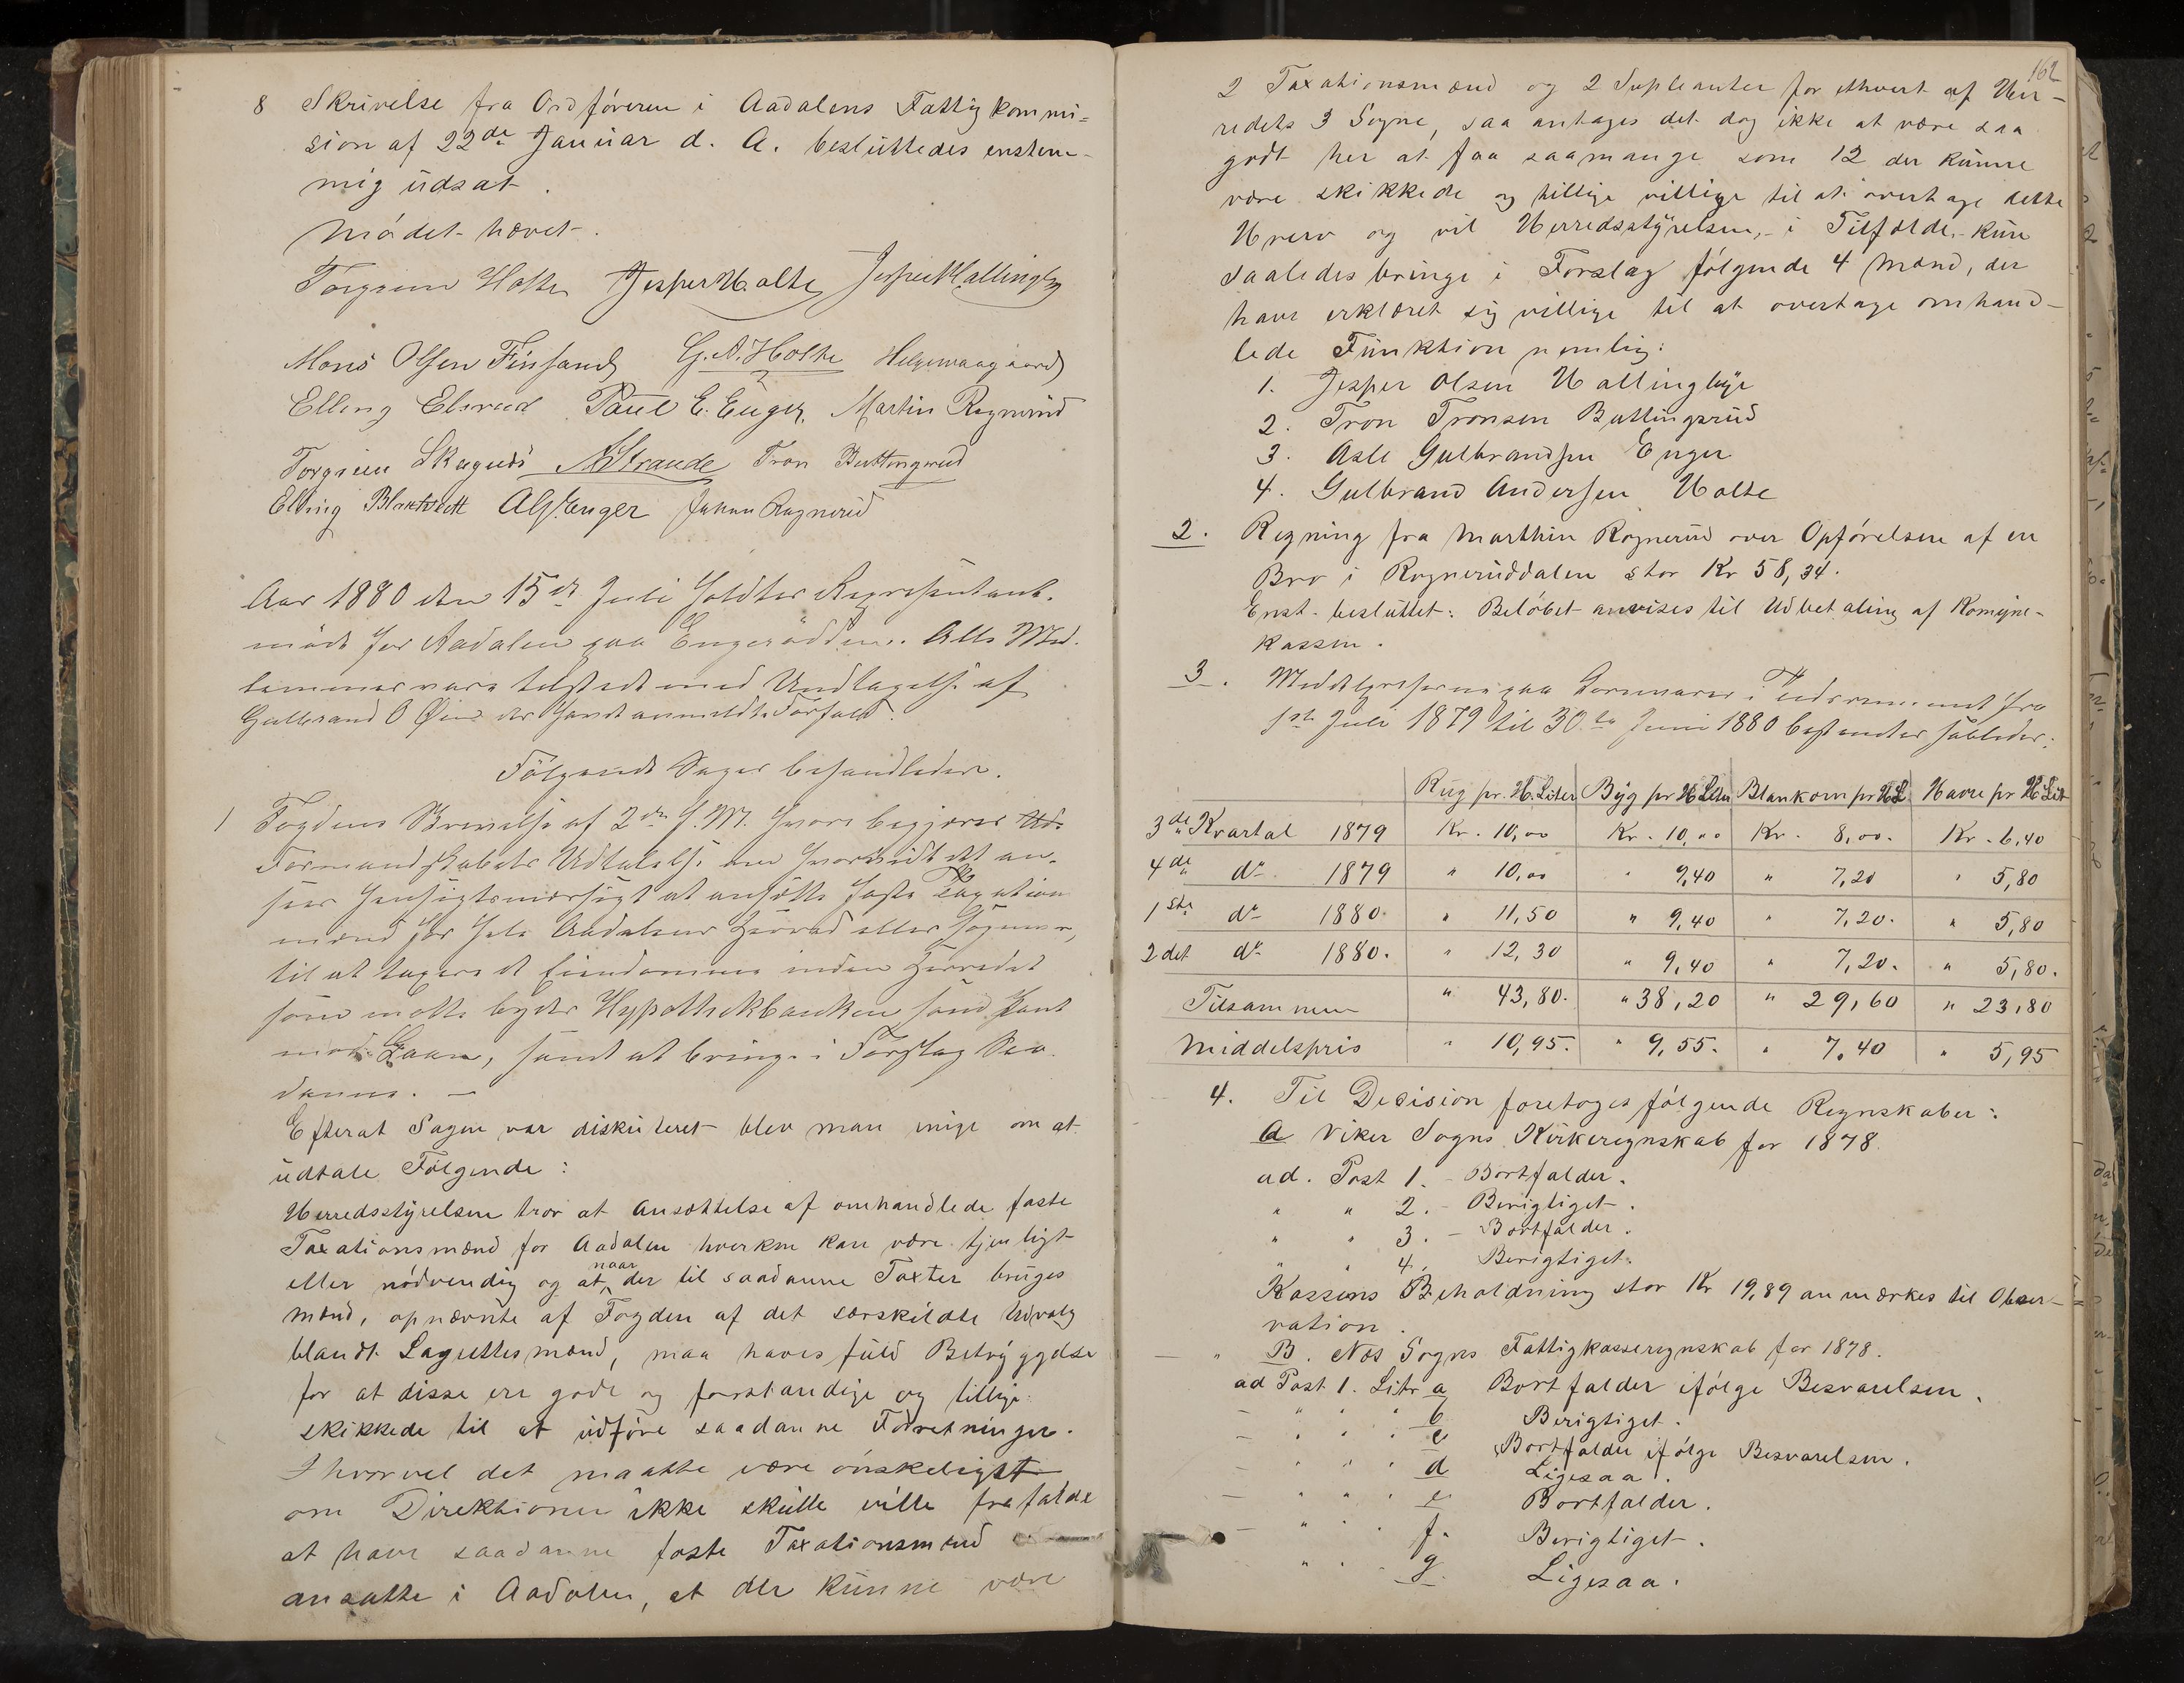 8 Skrivelse fra Ordføreren i Aadalens Fattigkommi=
sion af 22de Januar d. A. besluttedes enstem-
mig udsat.
Mødet hævet.
Torgrim Holte Jesper H.olte Jesper Hallingby
Mons Olsen Finsand G. A. Holte Helgewaagaard
Elling Elsrud Paul E. Enger. Martin Rognerud
Torgrim Skagnæs Strande Tron Buttingsrud
Elling AGEnger Johan Rognerud
Aar 1880 den 15de Juli holdtes Repræsentant-
møde for Aadalen paa Engerodden. Alle Med-
lemmer vare tilstede med Undtagelse af
Gulbrand O der havde anmeldt Forfald.
Følgende Sager behandledes.
1 Fogdens Skrivelse af 2den f. M. hvori begjæres Ud-
Formandskabets Udtalelse om hvorvidt det an-
sees hensigtsmæssigt at ansætte faste Taxations
mænd for hele Aadalens Herred eller Sognene,
til at taxere de Eiendomme inden Herredet
som maatte bydes Hypothekbanken som Pant
mod Laan, samt at bringe i Forslag Saa-
danne. —
Efterat Sagen var diskuteret blev man enige om at
udtale Følgende:
Herredsstyrelsen tror at Ansættelse af omhandlede faste
Taxationsmænd for Aadalen hverken kan være tjenligt
eller nødvendig og at naar der til saadanne Taxter bruges
Mænd, opnævnte af Fogden af det særskildte Udvalg
blandt Lagrettesmænd, maa haves fuld Betryggelse
for at disse ere gode og forstandige og tillige
skikkede til at udføre saadanne Forretninger.
Ihvorvel det maatte være ønskeligst
om Direktionen ikke skulle ville frafalde
at have saadanne faste Taxationsmænd
ansatte i Aadalen, at der kunne være
162
2 Taxationsmænd og 2 Supleanter for ethvert af Her-
redets 3 Sogne, saa antages det dog ikke at være saa
godt her at faa saamange som 12 der kunne
være skikkede og tillige villige til at overtage dette
Hverv og vil Herredsstyrelsen,- i Tilfælde,- kun
saaledes bringe i Forslag følgende 4 Mænd, der
have erklæret sig villige til at overtage omhand-
lede Funktion nemlig:
1. Jesper Olsen Hallingbye
2. Tron Tronsen Buttingsrud
3. Asle Gulbrandsen Enger
4. Gulbrand Andersen Holte
2. Regning fra Marthin Rognerud over Opførelsen af en
Bro i Rogneruddalen stor Kr 58,34.
Enst. besluttet: Beløbet anvises til Udbetaling af Komune-
kassen.
3. Middelpriserne paa Kornvarer i Tidsrummet fra
1ste Juli 1879 til 30te Juni 1880 bestemtes saaledes:
Rug pr. H.Liter Byg pr H Liter Blankorn pr H L Havre pr H Lit
3de Kvartal 1879 Kr. 10,00 Kr. 10,00 Kr. 8,00. Kr. 6,40
4de do 1879 " 10,00 " 9,40 " 7,20 " 5,80
1ste do 1880 " 11,50 " 9,40 " 7,20. " 5,80
2det do 1880. " 12,30 " 9,40 " 7,20. " 5,80.
Tilsammen " 43,80. " 38,20 " 29,60 " 23,80
Middelspris " 10,95. " 9,55. " 7,40 " 5,95
4. Til Decision foretoges følgende Regnskaber:
A Viker Sogns Kirkeregnskab for 1878.
ad. Post 1. - Bortfalder.
" " 2. - Berigtiget.
" " 3. - Bortfalder.
" " 4. Berigtiget.
Kassens Beholdning stor Kr 19,89 anmærkes til Obser-
vation.
B. Næs Sogns Fattigkasseregnskab for 1878.
ad Post 1. Litr a Bortfalder ifølge Besvarelsen.
- " " " b Berigtiget.
- " " " c Bortfalder ifølge Besvarelsen.
- " " " d Ligesaa.
- " " " e Bortfalder.
- " " f. Berigtiget.
" " g. Ligesaa.